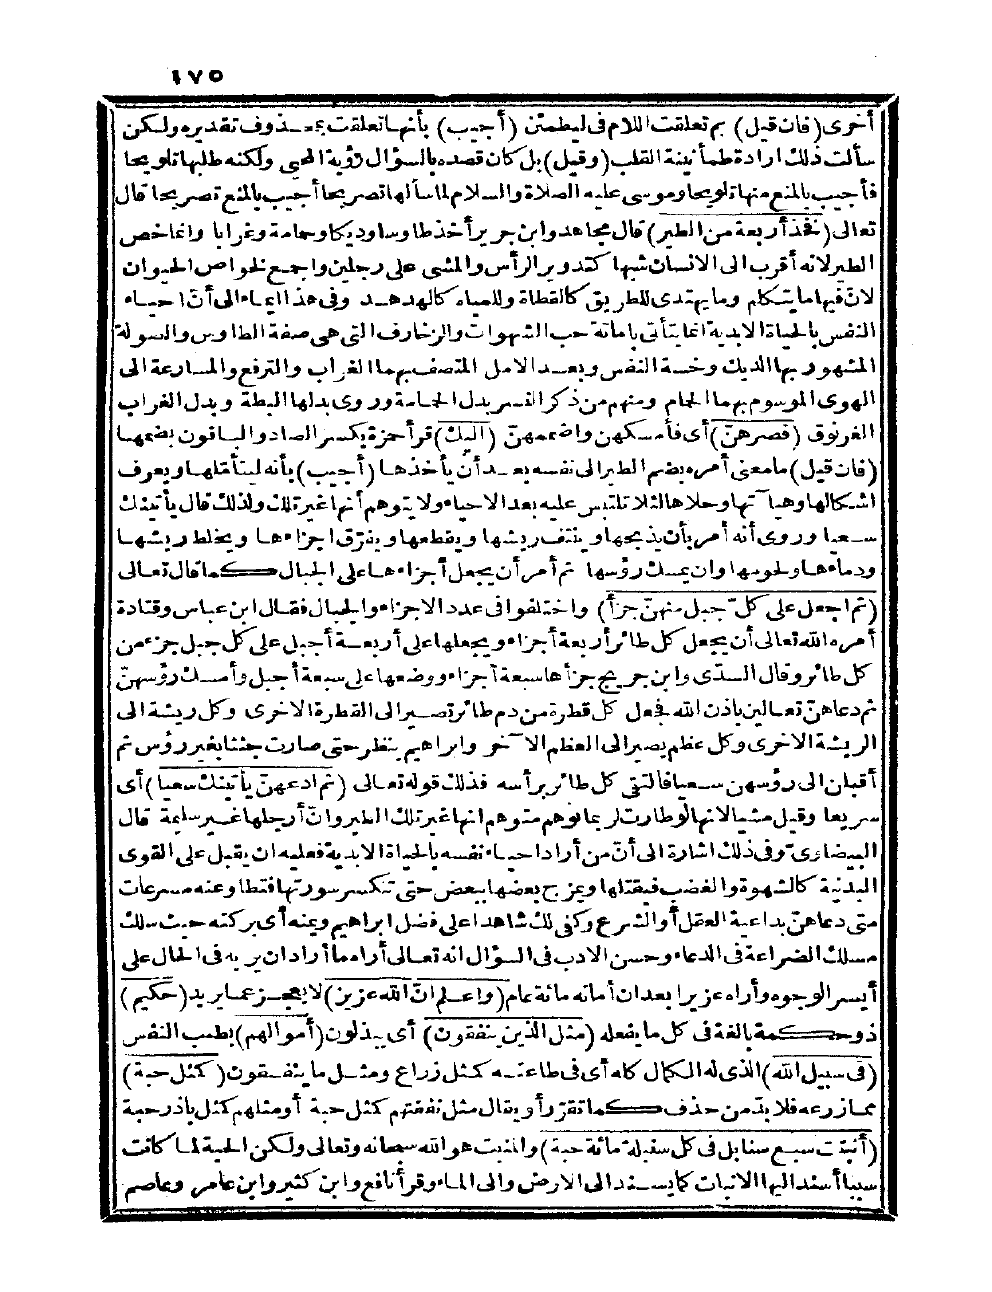 ١٧٥
أخرى (فان قيل) بم تعلقت اللام فى ليطمئن (أجيب) بأنها تعلقت بمحذوف تقديره ولكن
سألت ذلك ارادة طمأنينة القلب (وقيل) بل كان قصده بالسؤال رؤية المحيى ولكنه طلبها تلويحا
فأجيب بالمنع منها تلويحا وموسى عليه الصلاة والسلام لما سألها تصريحا أجيب بالمنع تصريحا قال
تعالى (فخذ أربعة من الطير) قال مجاهد وابن جرير أخذ طاوسا وديكا وحمامة وغرابا وانما خص
الطير لانه أقرب الى الانسان شبها كتدوير الرأس والمشى على رجلين واجمع لخواص الحيوان
لان فيها ما يتكلم وما يهتدى للطريق كالقطاة وللمياه كالهدهد وفى هذا ايماء الى أنّ احياء
النفس بالحياة الابدية انما يتأتى باماتة حب الشهوات والزخارف التى هى صفة الطاوس والصولة
المشهور بها الديك وخسة النفس وبعد الامل المتصف بهما الغراب والترفع والمسارعة الى
الهوى الموسوم بهما الحمام ومنهم من ذكر النسر بدل الحمامة وروى بدلها البطة وبدل الغراب
الغرنوق (فصرهنّ) أى فأمسكهن واضممهنّ (اليك) قرأ حمزة بكسر الصاد والباقون بضمها
(فان قيل) ما معنى أمره بضم الطير الى نفسه بعد أن يأخذها (أجيب) بأنه ليتأملها ويعرف
اشكالها وهيآتها وحلاها لئلا تلتبس عليه بعد الاحياء ولا يتوهم أنها غير تلك ولذلك قال يأتينك
سعيا وروى أنه أمر بأن يذبحها وينتف ريشها ويقطعها ويفرّق اجزاءها ويخلط ريشها
ودماءها ولحومها وان يمسك رؤسها ثم أمر أن يجعل أجزاءها على الجبال كما قال تعالى
(ثم اجعل على كل جبل منهنّ جزأ) واختلفوا فى عدد الاجزاء والجبال فقال ابن عباس وقتادة
أمره الله تعالى أن يجعل كل طائر أربعة أجزاء ويجعلها على أربعة أجبل على كل جبل جزء من
كل طائر وقال السدّى وابن جريج جزأها سبعة أجزاء ووضعها على سبعة أجبل وأمسك رؤسهنّ
ثم دعاهنّ تعالين باذن الله فجعل كل قطرة من دم طائر تصير الى القطرة الاخرى وكل ريشة الى
الريشة الاخرى وكل عظم يصير الى العظم الآخر وابراهيم ينظر حتى صارت جثثا بغير رؤس ثم
أقبلن الى رؤسهن سعيا فالتقى كل طائر برأسه فذلك قوله تعالى (ثم ادعهنّ يأتينك سعيا) أى
سريعا وقيل مشيا لانها لو طارت لربما توهم متوهم انها غير تلك الطير وانّ أرجلها غير سليمة قال
البيضاوىّ وفى ذلك اشارة الى أنّ من أراد احياء نفسه بالحياة الابدية فعليه ان يقبل على القوى
البدنية كالشهوة والغضب فيقتلها ويمزج بعضها ببعض حتى تنكسر سورتها فتطاوعنه مسرعات
متى دعاهنّ بداعية العقل أو الشرع وكفى لك شاهدا على فضل ابراهيم ويمنه أى بركته حيث سلك
مسلك الضراعة فى الدعاء وحسن الادب فى السؤال انه تعالى أراه ما أراد ان يريه فى الحال على
أيسر الوجوه وأراه عزيرا بعد ان أماته مائة عام (واعلم انّ الله عزيز) لا يعجز عما يريد (حكيم)
ذو حكمة بالغة فى كل ما يفعله (مثل الذين ينفقون) أى يبذلون (أموالهم) بطيب النفس
(فى سبيل الله) الذى له الكمال كله أى فى طاعته كمثل زراع ومثل ما ينفقون (كمثل حبة)
مما زرعه فلا بدّ من حذف كما تقرّر أو يقال مثل نفقتهم كمثل حبة أو مثلهم كمثل باذر حبة
(أنبتت سبع سنابل فى كل سنبلة مائة حبة) والمنبت هو الله سبحانه وتعالى ولكن الحبة لما كانت
سببا أسند اليها الانبات كما يسند الى الارض والى الماء وقرأ نافع وابن كثير وابن عامر وعاصم